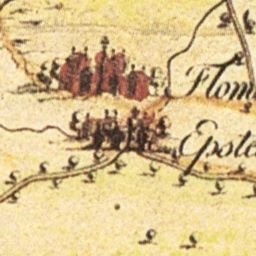 Flom
Epste